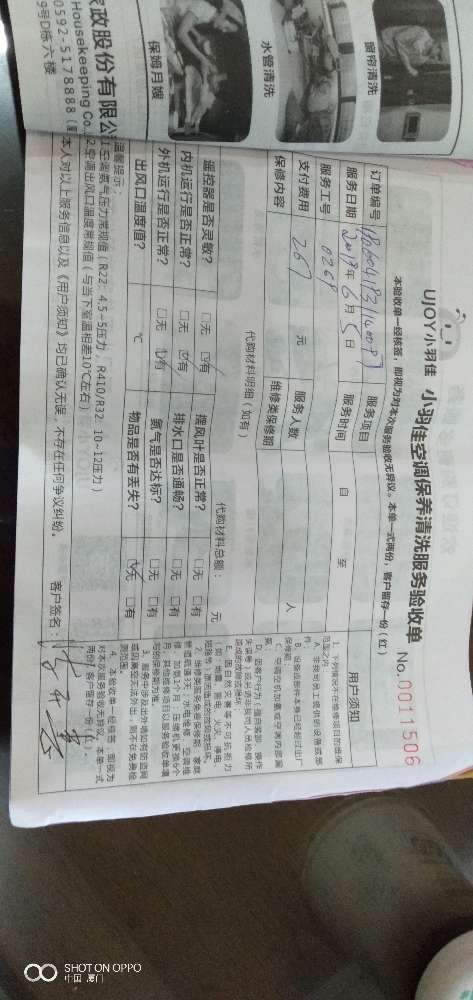 窗帘清洗
水管清洗
保姆月嫂
家政股份有限公
Housekeeping Co.,
0592-5178888
9号D栋六楼
UJOY小羽佳
小羽佳空调保养清洗服务验收单
No.0011506
本验收单一经核签，即视为对本次服务验收无异议。本单一式两份，客户留存一份（红）
订单编号
服务项目
服务日期 2018年6月5日
服务时间 自 至
服务工号 0268
服务人数 人
支付费用 267 元
维修类保修期
保修内容
代购材料明细（如有）
代购材料总额： 元
遥控器是否灵敏？ □无 □有
摆风叶是否正常？ □无 □有
内机运行是否正常？ □无 □有
排水口是否通畅？ □无 □有
外机运行是否正常？ □无 □有
氨气是否达标？ □无 □有
出风口温度值？ ℃
物品是否有丢失？ □无 □有
温馨提示：
1.空调氨气压力常规值（R22：4.5-5压力，R410/R32 10-12压力）
2.空调出风口温度常规值（与当下室温相差10℃左右）
本人对以上服务信息以及《用户须知》均已确认无误，不存在任何争议纠纷。
客户签名：
用户须知
1、下列情况不在维修项目的当保
范围之内：
A、非我司员工提供的设备或部
件；
B、设备或部件本身已经超过出厂
保修期；
E、因自然灾害等不可抗拒力
4、本验收单一经核签，即视为
对本次服务验收无异议。本单一式
两份，客户留存一份（红）。
SHOT ON OPPO
中国 厦门